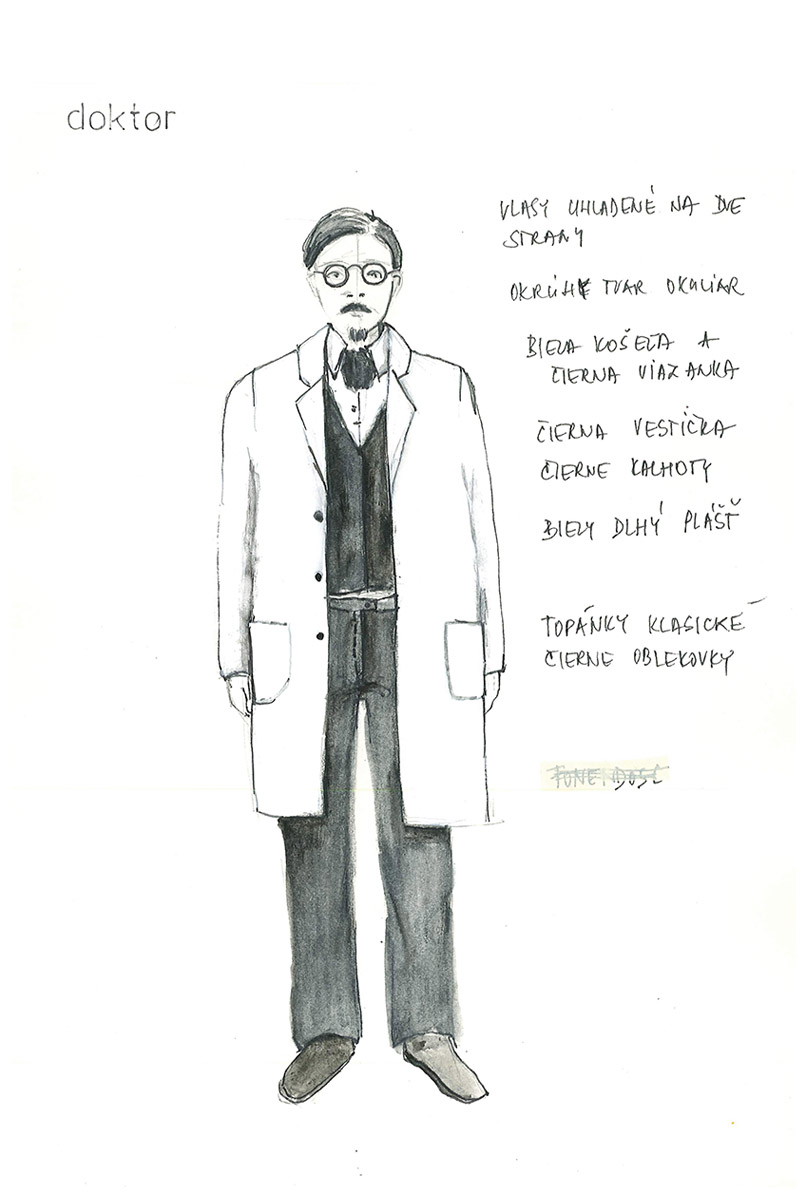 doktor
VLASY UHLADENÉ NA DVE
STRANY
OKRÚHLY TVAR OKULIAR
BIELA KOŠEĽA A
ČIERNA VIAZANKA
ČIERNA VESTIČKA
ČIERNE KALHOTY
BIELY DLHÝ PLÁŠŤ
TOPÁNKY KLASICKÉ
ČIERNE OBLEKOVKY